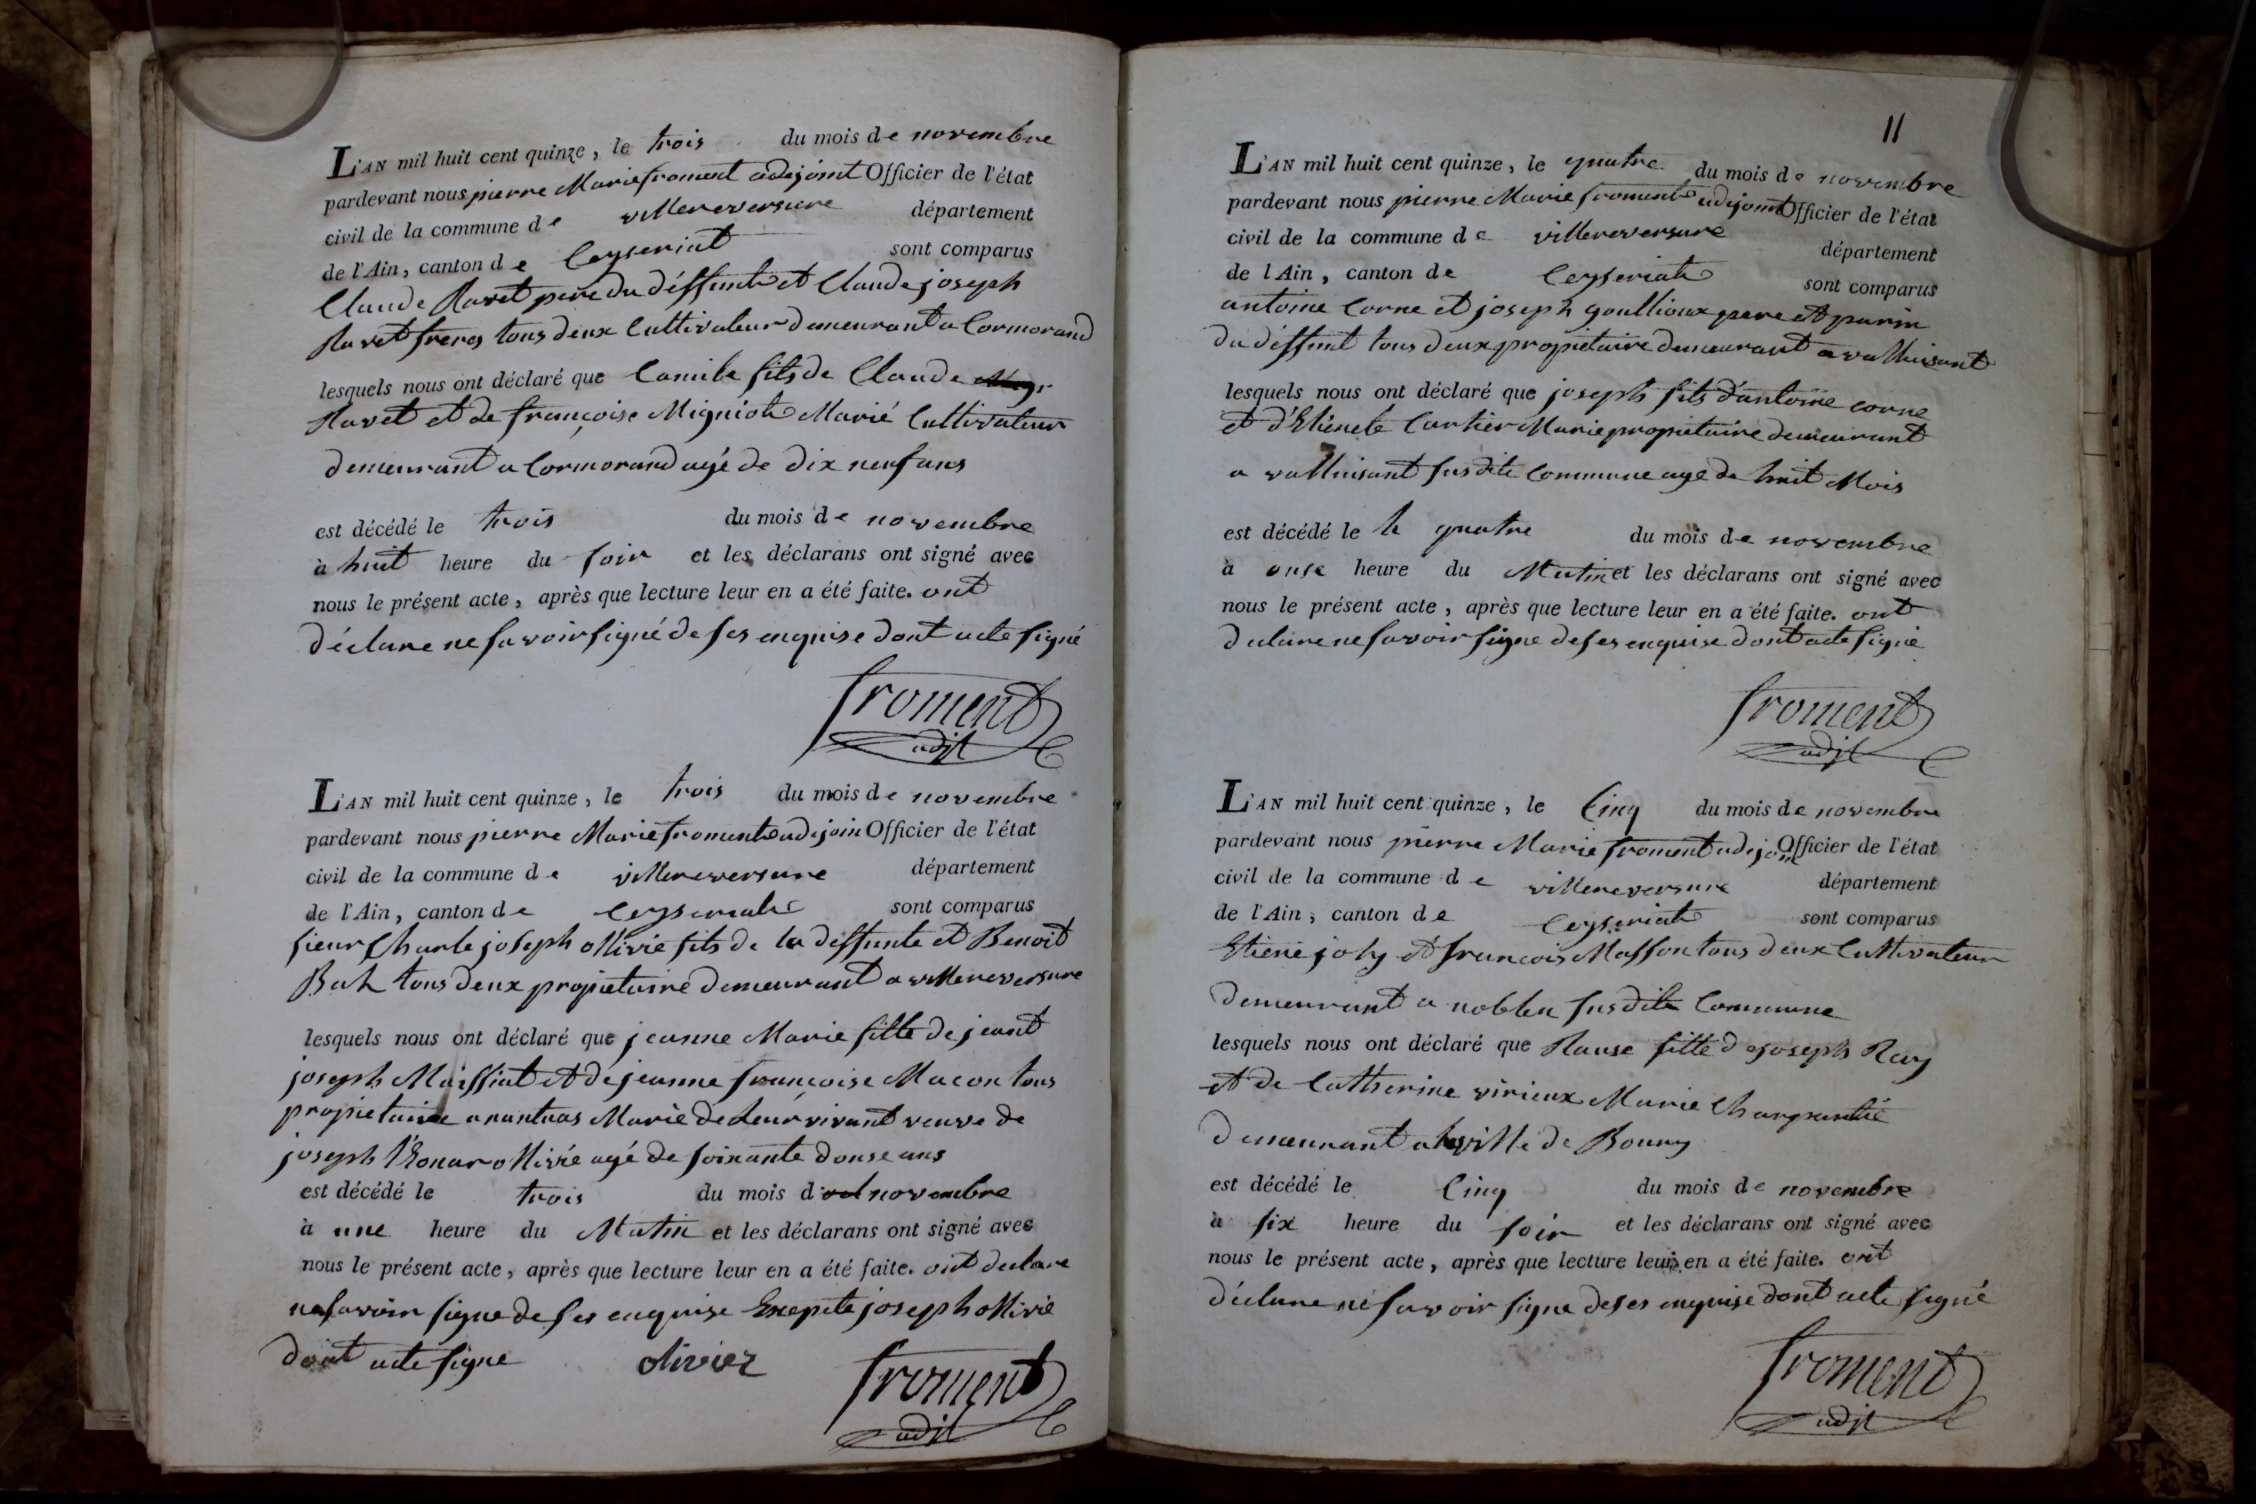 L'AN mil huit cent quinze, le trois du mois de novembre
pardevant nous pierre Marie froment adejoint Officier de l'état
civil de la commune de villereversure département
de l'Ain, canton de Ceyseriat sont comparus
Claude Ravet pere du déffunt et Claude joseph
Ravet freres tous deux Cultivateur demeurant a Cormorand
lesquels nous ont déclaré que Camile fils de Claude
Ravet et de françoise Migniot Marié Cultivateur
demeurant a Cormorand agé de dix neuf ans
est décédé le trois du mois de novembre
à huit heure du soir et les déclarans ont signé avec
nous le présent acte, après que lecture leur en a été faite. ont
déclare ne savoir signé de ses enquise dont acte signé
froment
adjt
L'AN mil huit cent quinze, le trois du mois de novembre
pardevant nous pierre Marie froment adejoin Officier de l'état
civil de la commune de villereversure département
de l'Ain, canton de Ceyseriat sont comparus
sieur Charle joseph ollivié fils de la deffunte et Benoit
tous deux propietaire demeurant a villereversure
lesquels nous ont déclaré que jeanne Marie fille de jeant
joseph Maissiat et de jeanne françoise Macon tous
propietaire a nantuas Marié de leur vivant veuve de
joseph ollivié agé de soixante douse ans
est décédé le trois du mois d novembre
à une heure du Matin et les déclarans ont signé avec
nous le présent acte, après que lecture leur en a été faite. ont declare
ne savoir signe de ses enquise Exepte joseph ollivié
dont acte signe olivier froment
adjt
11
L'AN mil huit cent quinze, le quatre du mois de novembre
pardevant nous pierre Marie froment adejoint Officier de l'état
civil de la commune de villereversure département
de l'Ain, canton de Ceyseriat sont comparus
antoine Corne et joseph goullioux pere et parin
du déffunt tous deux propiétaire demeurant a valluisant
lesquels nous ont déclaré que joseph fils d'antoine corne
et d'Etienete Cartier Marie propietaire demeurant
a valluisant susdite commune agé de huit Mois
est décédé le le quatre du mois de novembre
à onse heure du Matin et les déclarans ont signé avec
nous le présent acte, après que lecture leur en a été faite. ont
declare ne savoir signe de ses enquise dont acte signé
froment
adjt
L'AN mil huit cent quinze, le Cinq du mois de novembre
pardevant nous pierre Marie froment adejoin Officier de l'état
civil de la commune de villereversure département
de l'Ain, canton de Ceyseriat sont comparus
Etiene joly et francois Masson tous deux Cultivateur
demeurant a noblen susdite Commune
lesquels nous ont déclaré que Rause fille de joseph Ray
et de Catherine virieux Marie Charpantié
demeurant a la ville de Bourg
est décédé le Cinq du mois de novembre
à six heure du soir et les déclarans ont signé avec
nous le présent acte, après que lecture leur en a été faite. ont
déclare ne savoir signe de ses enquise dont acte signé
froment
adjt